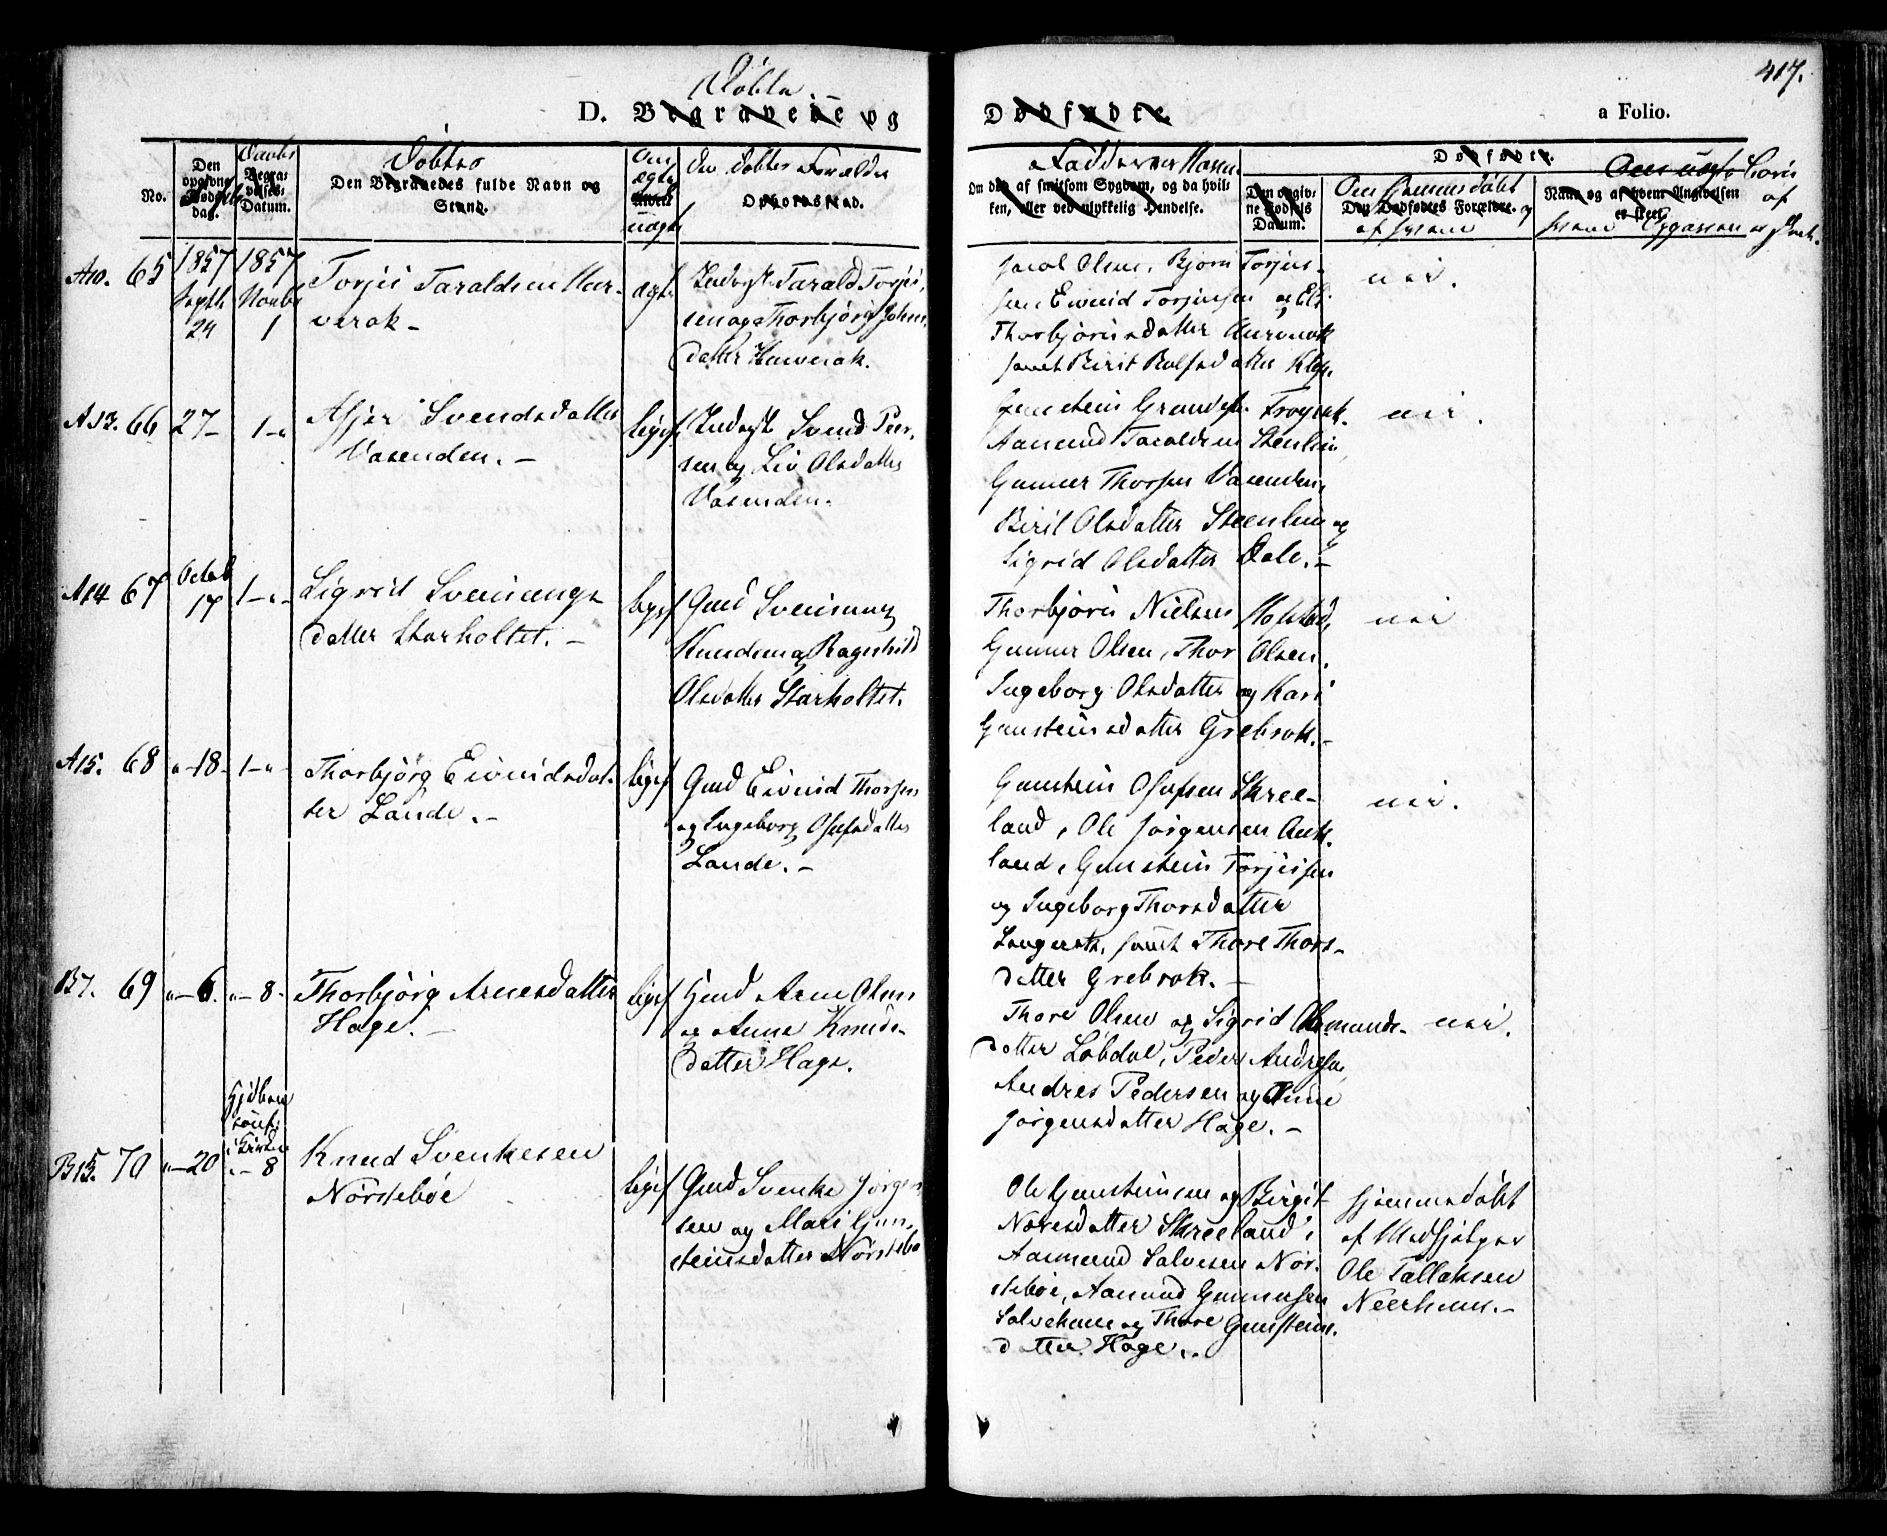 417.
Döbte
D. Begravede og Dødfødte.
a Folio.
No.
Den opgivne Døds-dag.
Daabs
Begravelses-Datum.
Döbtes
Den Begravedes fulde Navn og Stand.
Om ægte eller uægte
De Döbtes Forældre
Opholdssted.
Faddernes Navne
Om død af smitsom Sygdom, og da hvilken, eller ved ulykkelig Hendelse.
Dødfødte.
Den opgivne Fødsels Datum.
Om hjemmedöbt
Den Dødfødtes Forældre.
af hvem
Navn og af hvem Angivelsen er skeet.
A10. 65
1857
Septb
24
1857
Novbr
1
Torjus Taraldsen Har-
verak -
ægt.
Indergst Tarald Torjus-
sen og Thorbjörg Johns-
datter Harverak.
Jacob Olsen, Björn Torjus-
sen Eivind Torjussen og Else
Thorbjörnsdatter
samt Birit Rolfsdatter
nei.
A13. 66
27-
1-"
Asjer Svendsdatter
Vasenden. -
liges.
Indergst Svend Peer-
sen og Liv Olsdatter
Vasenden.
Gunstein
Aamund Taraldsen Steenlien,
Gunner Thorsen Vasenden,
Birit Olsdatter Steenlien og
Sigrid Olsdatter Dale. -
nei.
A14 67
Octob
17
1-"-
Sigrid Svenungs-
datter Storholtet. -
liges
Gmd Svenung
Knudsen og Ragnhild
Olsdatter Storholtet.
Thorbjörn Nielsen
Gunner Olsen, Thor Olsen,
Ingeborg Olsdatter og Kari
Gunsteinsdatter Grebrok. -
nei
A15. 68
"-18-
1-"-
Thorbjörg Eivindsdat-
ter Lande. -
liges
Gmd Eivind Thorsen
og Ingeborg Olufsdatter
Lande. -
Gunstein Olufsen Skree-
land, Ole Jörgensen Auk-
land, Gunstein Torjussen
og Ingeborg Thorsdatter
Langerak, samt Thore Thors-
datter Grebrok. -
nei.
B7. 69
"-6.
"-8-
Thorbjörg Arnesdatter
Hage. -
liges
Gmd Arne Olsen
og Anne Knuds-
datter Hage.
Thore Olsen og Sigrid Aamunds-
datter Löbdal, Peder Andresen,
Andres Pedersen og Anne
Jörgensdatter Hage. -
nei.
i Kirken
B15. 70
"-20
"-8
Knud Svenkesen
Nörstebøe
liges
Gmd Svenke Jörgen-
sen og Mari Gun-
steinsdatter Nörstebø
Ole Gunsteinsen og Birgit
Noresdatter Skreeland,
Aamund Salvesen Nör-
stebøe, Aamund Gunnersen
Salvehaue og Thore Gunsteins-
datter Hage..
hjemmedöbt
af Medhjelper
Ole Tallaksen
Neerhuus. -